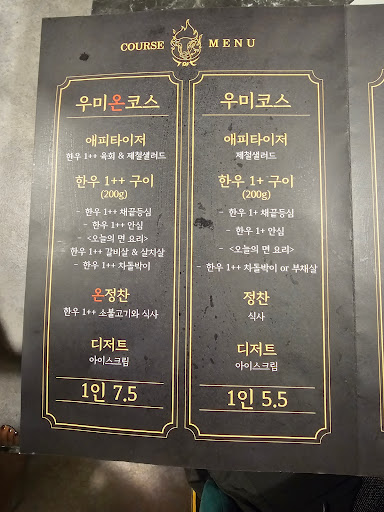 COURSE MENU
우미온코스
애피타이저
한우 1++ 육회 & 제철샐러드
한우 1++ 구이
(200g)
- 한우 1++ 채끝등심
- 한우 1++ 안심
- <오늘의 면 요리>
- 한우 1++ 갈비살 & 살치살
- 한우 1++ 차돌박이
온정찬
한우 1++ 소불고기와 식사
디저트
아이스크림
1인 7.5
우미코스
애피타이저
제철샐러드
한우 1+ 구이
(200g)
- 한우 1+ 채끝등심
- 한우 1+ 안심
- <오늘의 면 요리>
- 한우 1++ 차돌박이 or 부채살
정찬
식사
디저트
아이스크림
1인 5.5